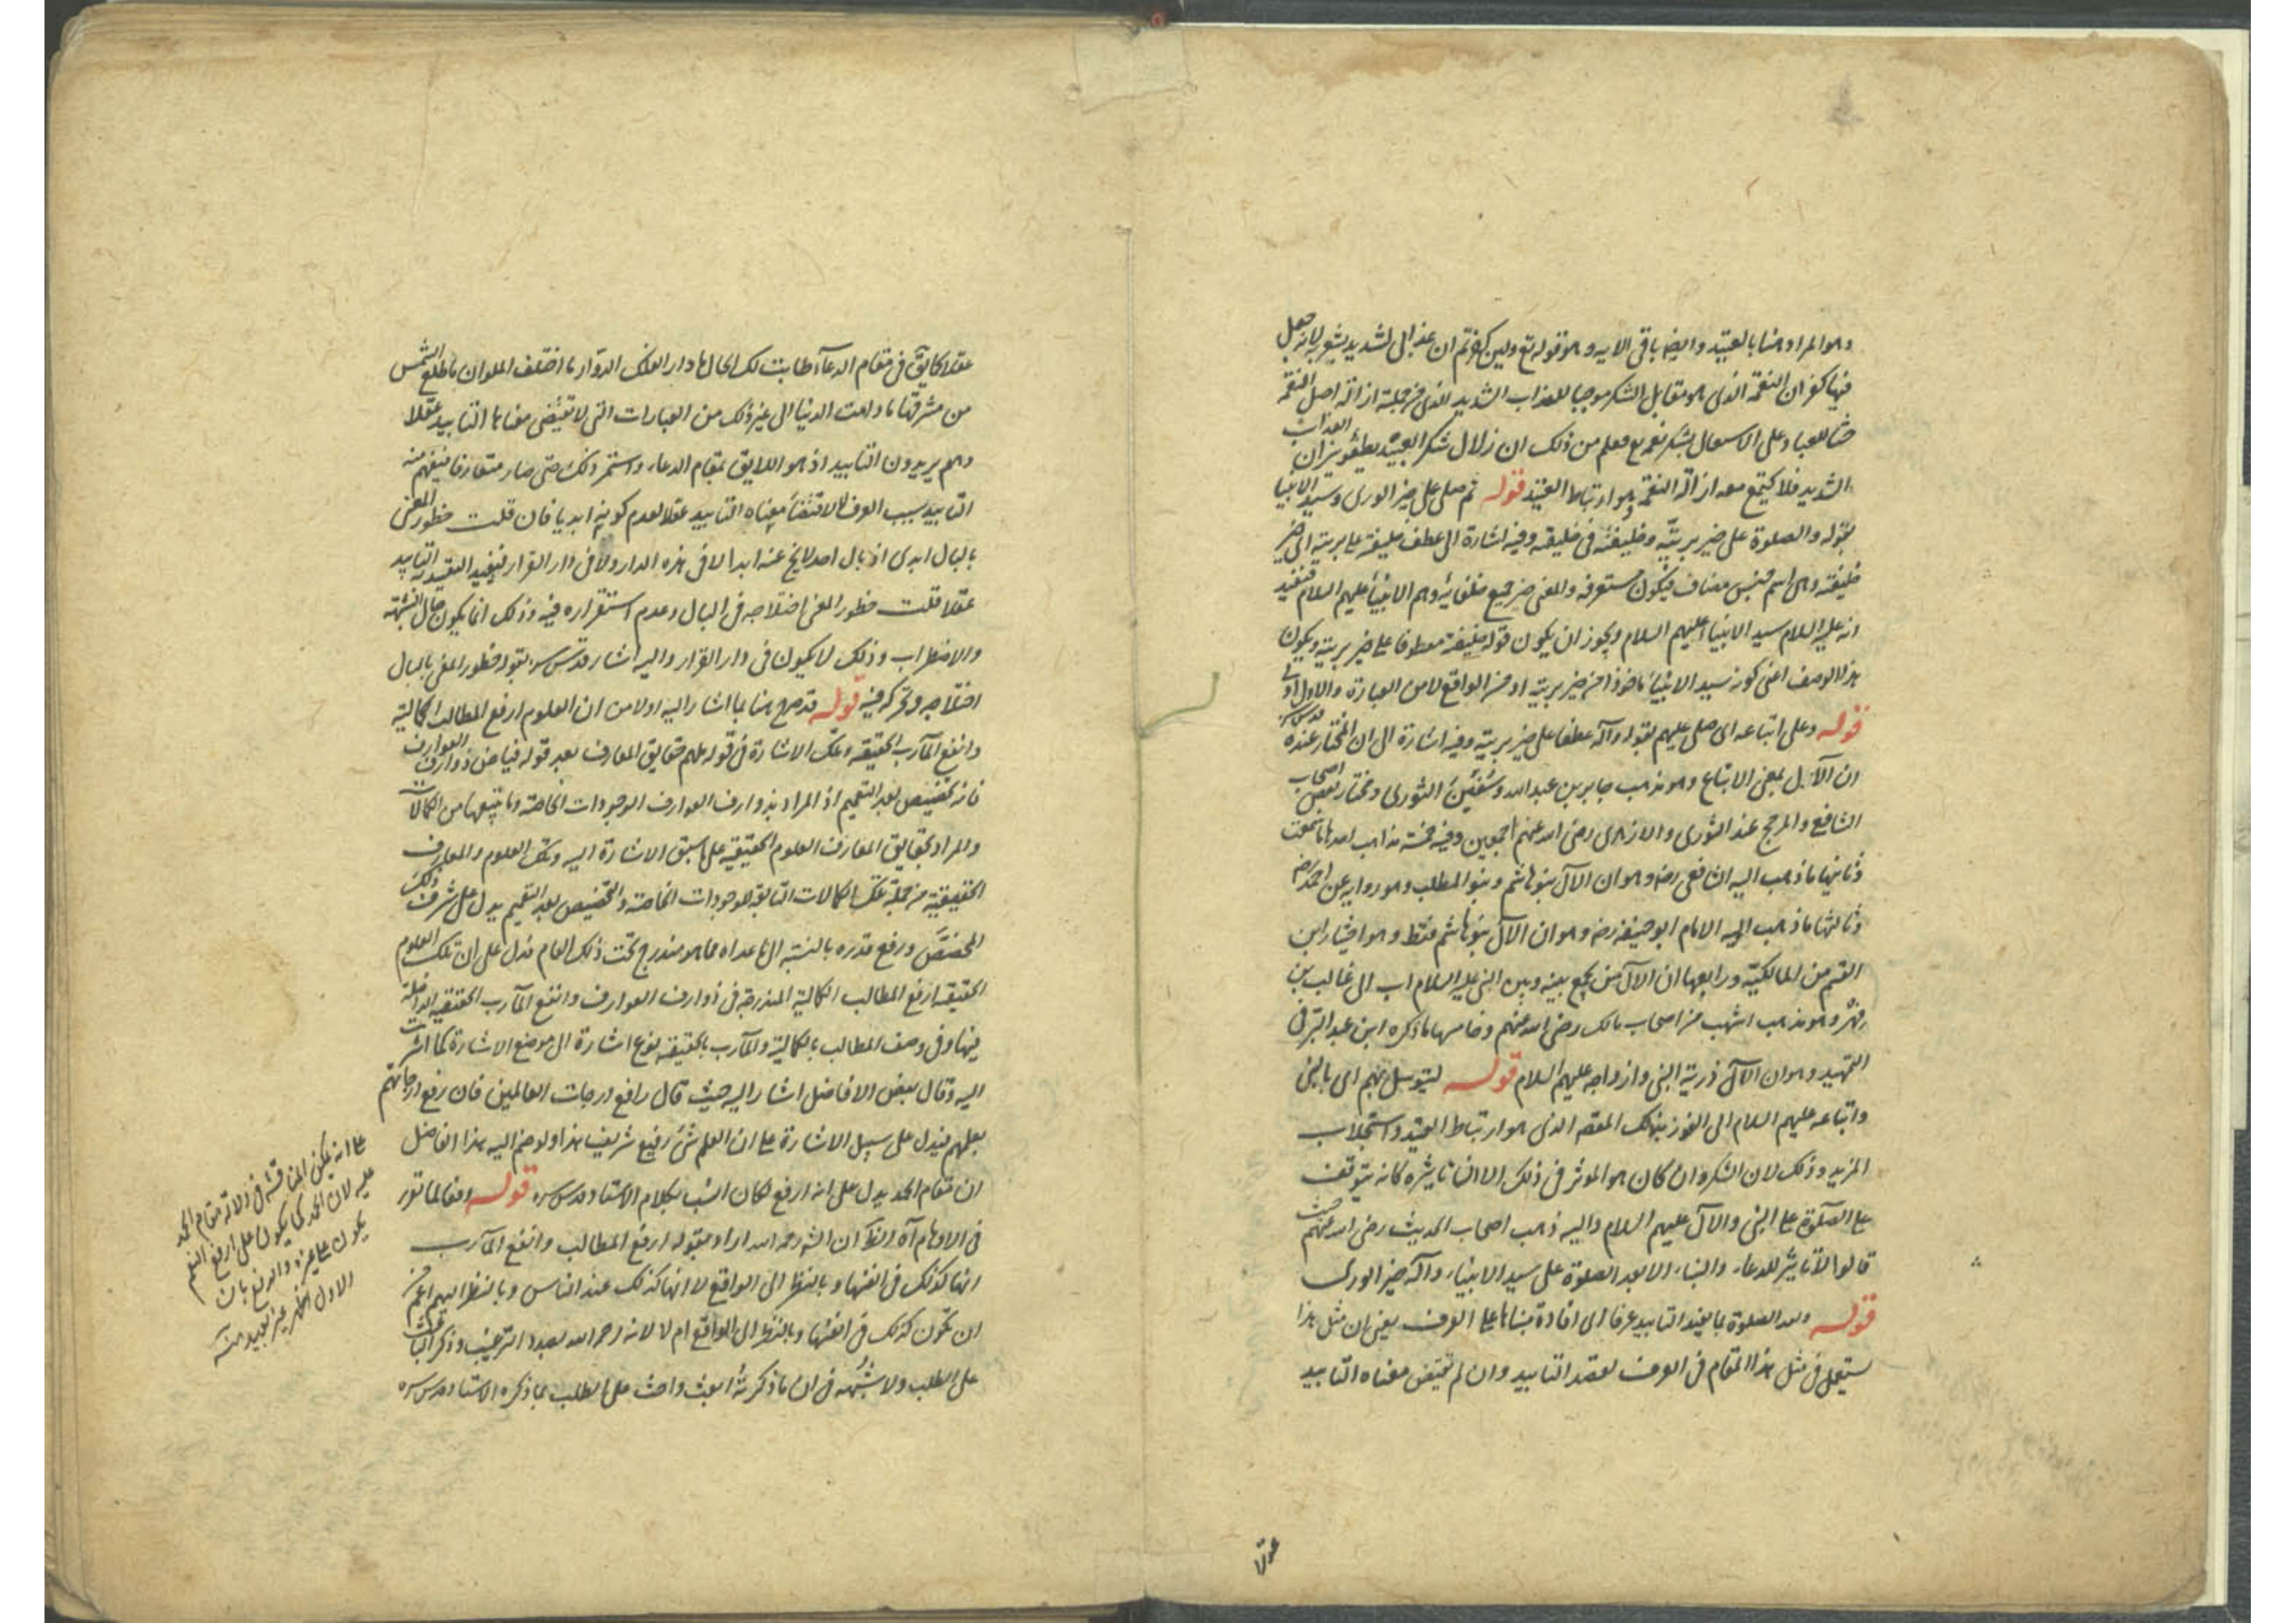 وهو المراد هنا بالعتيد وايضا باقي الآية وهو قوله تع ولئن كفرتم ان عذابي لشديد يشعر به لانه جعل
فيها كفران النعمة الذي هو مقابل الشكر موجبا للعذاب الشديد الذي من جملته ازالة اصل النعمة
حثا للعباد على الاشتغال بشكر نعمه فعلم من ذلك ان زلال شكر العتيد يطفئ نيران العذاب
الشديد فلا يجتمع معه ازالة النعمة وهو ارتباط العتيد قوله ثم صلى على خير الورى وسيد الانبيا
بقوله والصلوة على خير بريته وخليفته في خليقته وفيه اشارة الى عطف خليفته على بريته اي خير
خليفته وهي اسم جنس مضاف فيكون مستغرقه والمعنى خير جميع خلفائه وهم الانبياء عليهم السلام فتفيد
انه عليه السلام سيد الانبياء عليهم السلام ويجوز ان يكون قوله خليفته معطوفا على خير بريته ويكون
هذا الوصف اعني كونه سيد الانبياء ماخوذا من خير بريته او من الواقع لا من العبارة والاول اولى
قوله وعلى اتباعه اي صلى عليهم بقوله وآله عطفا على خير بريته وفيه اشارة الى ان المختار عنده قدس سره
ان الآل بمعنى الاتباع وهو مذهب جابر بن عبد الله وسفين الثوري ومختار بعض اصحاب
الشافعي والمرجح عند النووي والازهري رضي الله عنهم اجمعين وفيه خمسة مذاهب احدها ما سمعت
وثانيها ما ذهب اليه الشافعي رضه وهو ان الآل بنو هاشم وبنو المطلب وهو رواية عن احمد رضه
وثالثها ما ذهب اليه الامام ابو حنيفة رضه وهو ان الآل بنو هاشم فقط وهو اختيار ابن
القسم من المالكية ورابعها ان الآل من يجمع بينه وبين النبي عليه السلام اب الى غالب بن
فهر وهو مذهب اشهب من اصحاب مالك رضي الله عنهم وخامسها ما ذكره ابن عبد البر في
التمهيد وهو ان الآل ذرية النبي وازواجه عليهم السلام قوله ليتوسل بهم اي بالنبي
واتباعه عليهم السلام الى الفوز بذلك المقصد الذي هو ارتباط العتيد واستجلاب
المزيد وذلك لان الشكر وان كان هو الموثر في ذلك الا ان تاثيره كانه يتوقف
على الصلوة على النبي والآل عليهم السلام واليه ذهب اصحاب الحديث رضي الله عنهم حيث
قالوا لا تاثير للدعاء والثناء الا بعد الصلوة على سيد الانبياء وآله خير الورى
قوله الصلوة بما يفيد التابيد عرفا اي افادة مبناها على العرف يعني ان مثل هذا
يستعمل في مثل هذا المقام في العرف لقصد التابيد وان لم يقتض معناه التابيد
عقلا
عقلا كما يق في مقام الدعاء طابت لك الحال ما دار الفلك الدوار ما اختلف الملوان ما طلع الشمس
من مشرقها ما دامت الدنيا الى غير ذلك من العبارات التي لا تقتضي معناها التابيد عقلا
وهم يريدون التابيد اذ هو اللايق بمقام الدعاء واستمر ذلك حتى صار متعارفا فيفهم منه
التابيد بسبب العرف لا لاقتضاء معناه التابيد عقلا لعدم كونه ابديا فان قلت خطور المعنى
بالبال ابدي اذ بال احد لا يخ عنه ابدا لا في هذه الدار ولا في دار القرار فيفيد التقييد به التابيد
عقلا قلت خطور المعنى اختلاجه في البال وعدم استقراره فيه وذلك انما يكون حال الشبهة
والاضطراب وذلك لا يكون في دار القرار واليه اشار قدس سره بقوله خطور المعنى بالبال
اختلاجه وتحركه فيه قوله قد صرح هنا بما اشار اليه اولا من ان العلوم ارفع المطالب الكمالية
وانفع المآرب الحقيقية وتلك الاشارة في قوله ملهم حقايق المعارف بعد قوله فياض ذوارف العوارف
فانه تخصيص بعد التعميم اذ المراد بذوارف العوارف الوجودات الخاصة وما يتبعها من الكمالات
والمراد بحقايق المعارف العلوم الحقيقية على ما سبق الاشارة اليه وتلك العلوم والمعارف
الحقيقية من جملة تلك الكمالات التابعة للوجودات الخاصة والتخصيص بعد التعميم يدل على شرف ذلك
المخصص ورفع قدره بالنسبة الى ما عداه مما هو مندرج تحت ذلك العام فدل على ان تلك العلوم
الحقيقية ارفع المطالب الكمالية المندرجة في ذوارف العوارف وانفع المآرب الحقيقية الداخلة
فيها وفي وصف المطالب بالكمالية والمآرب بالحقيقية نوع اشارة الى موضع الاشارة كما اشرت
اليه وقال بعض الافاضل اشار اليه حيث قال رافع درجات العالمين فان رفع درجاتهم
بعلمهم فيدل على سبيل الاشارة على ان العلم شئ رفيع شريف هذا ولو ضم اليه هذا الفاضل
ان مقام الحمد يدل على انه ارفع لكان انسب بكلام الاستاد قدس سره قوله دفعا لما تقرر
في الاوهام آه الظ ان الش رحمه الله اراد بقوله ارفع المطالب وانفع المآرب
انها كذلك في انفسها وبالنظر الى الواقع لا انها كذلك عند الناس وبالنظر اليهم اعم من
ان تكون كذلك في انفسها وبالنظر الى الواقع ام لا لانه رحمه الله بصدد الترغيب وذكر الباعث
على الطلب ولا شبهة في ان ما ذكر ته ابعث واحث على الطلب مما ذكره الاستاد قدس سره
على انه يمكن المناقشة في دلالة مقام الحمد
عليه لان الحمد كما يكون على ارفع النعم
يكون على غيره والدفع بان
الاول اظهر غير بعيد منه